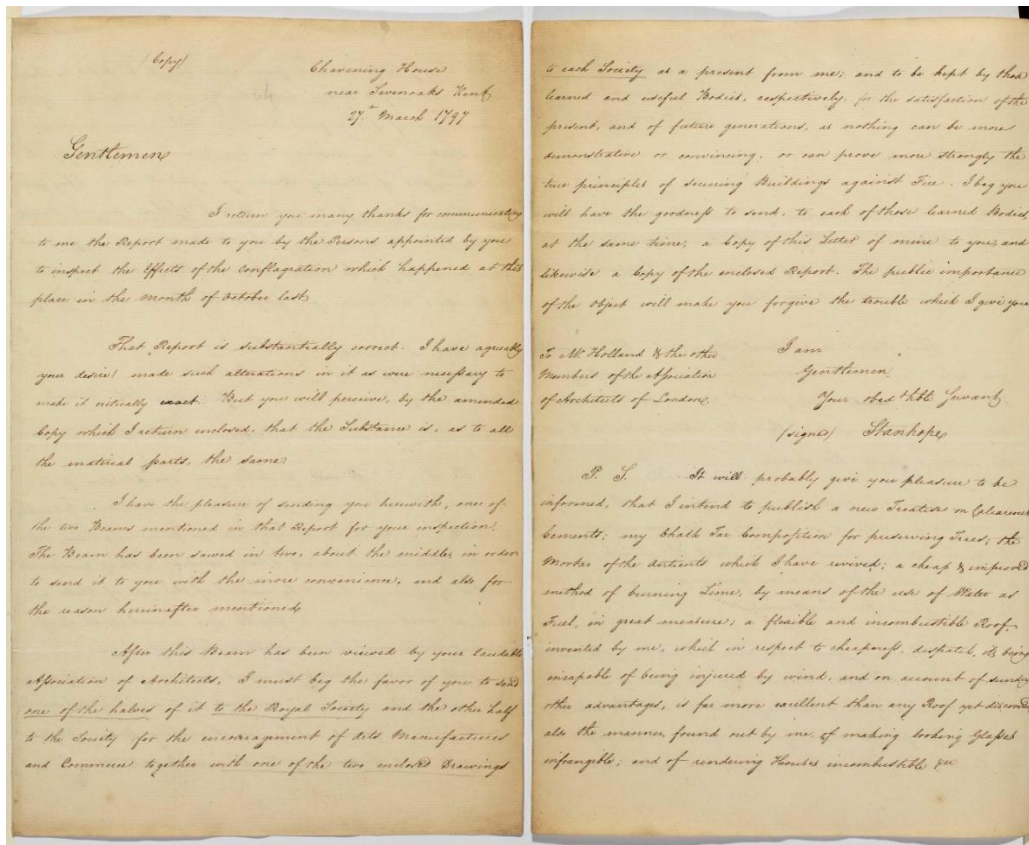 (Copy)
Chevening House
near Sevenoaks Kent
27th March 1797
Gentlemen
I return you many thanks for communicating
to me the Report made to you by the Persons appointed by you
to inspect the Effects of the Conflagration which happened at this
place in the Month of October last
That Report is substantially correct. I have agreeably
your desire made such alterations in it as were necessary to
make it critically exact. But you will perceive, by the amended
Copy which I return enclosed, that the Substance is, as to all
the material parts, the same
I have the pleasure of sending you herewith, one of
the two Beams mentioned in that Report for your inspection.
The Beam has been sawed in two, about the middle, in order
to send it to you with the more convenience, and also for
the reason hereinafter mentioned
After this Beam has been viewed by your laudable
Association of Architects, I must beg the favor of you to send
one of the halves of it to the Royal Society and the other half
to the Society for the encouragement of Arts Manufactures
and Commerce together with one of the two enclosed Drawings
to each Society as a present from me; and to be kept by those
learned and useful Bodies, respectively, for the satisfaction of the
present, and of future generations, as nothing can be more
demonstrative or convincing, or can prove more strongly the
true principles of securing Buildings against Fire. I beg you
will have the goodness to send, to each of those learned Bodies,
at the same time, a Copy of this Letter of mine to you, and
likewise a Copy of the enclosed Report. The public importance
of the Object will make you forgive the trouble which I give you
To Mr. Holland & the other
Members of the Association
of Architects of London
I am
Gentlemen
Your obedt. hble Servant
(signed) Stanhope
P. S. It will probably give you pleasure to be
informed, that I intend to publish a new Treatise on Calcareous
Cements; my Chalk Tar Composition for preserving Trees; the
Mortar of the Antients which I have revived; a cheap & improved
method of burning Lime, by means of the use of Water as
Fuel, in great measure; a flexible and incombustible Roof
invented by me, which in respect to cheapness, dispatch, its being
incapable of being injured by wind, and on account of sundry
other advantages, is far more excellent than any Roof yet discovd
also the manner, found out by me, of making looking Glasses
infrangible; and of rendering Houses incombustible &c